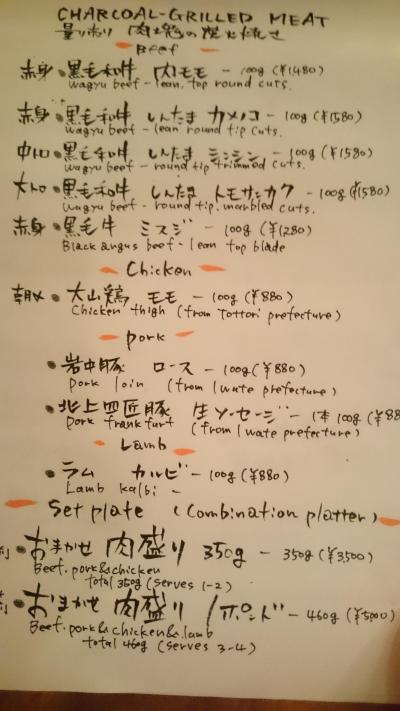 CHARCOAL-GRILLED MEAT
量り売り 肉塊の炭火焼き
Beef
赤身・黒毛和牛 内モモ - 100g (¥1480)
Wagyu beef - lean, top round cuts.
赤身・黒毛和牛 しんたま カメノコ - 100g (¥1580)
Wagyu beef - lean round tip cuts.
中トロ・黒毛和牛 しんたま シンシン - 100g (¥1580)
Wagyu beef - round tip trimmed cuts.
大トロ・黒毛和牛 しんたま トモサンカク - 100g (¥1580)
Wagyu beef - round tip. marbled cuts.
赤身・黒毛牛 ミスジ - 100g (¥1280)
Black angus beef - lean top blade
Chicken
朝〆・大山鶏 モモ - 100g (¥880)
Chicken thigh (from Tottori prefecture)
pork
・岩中豚 ロース - 100g (¥880)
Pork loin (from Iwate prefecture)
・北上四匠豚 生ソーセージ - 1本 100g (¥88
Pork frankfurt (from Iwate prefecture)
Lamb
・ラム カルビ - 100g (¥880)
Lamb kalbi -
Set plate (Combination platter)
・おまかせ 肉盛り 350g - 350g (¥3,500)
Beef. pork & chicken
total 350g (serves 1-2)
・おまかせ 肉盛り 1ポンド - 460g (¥5000)
Beef. pork & chicken & lamb
total 460g (serves 3-4)